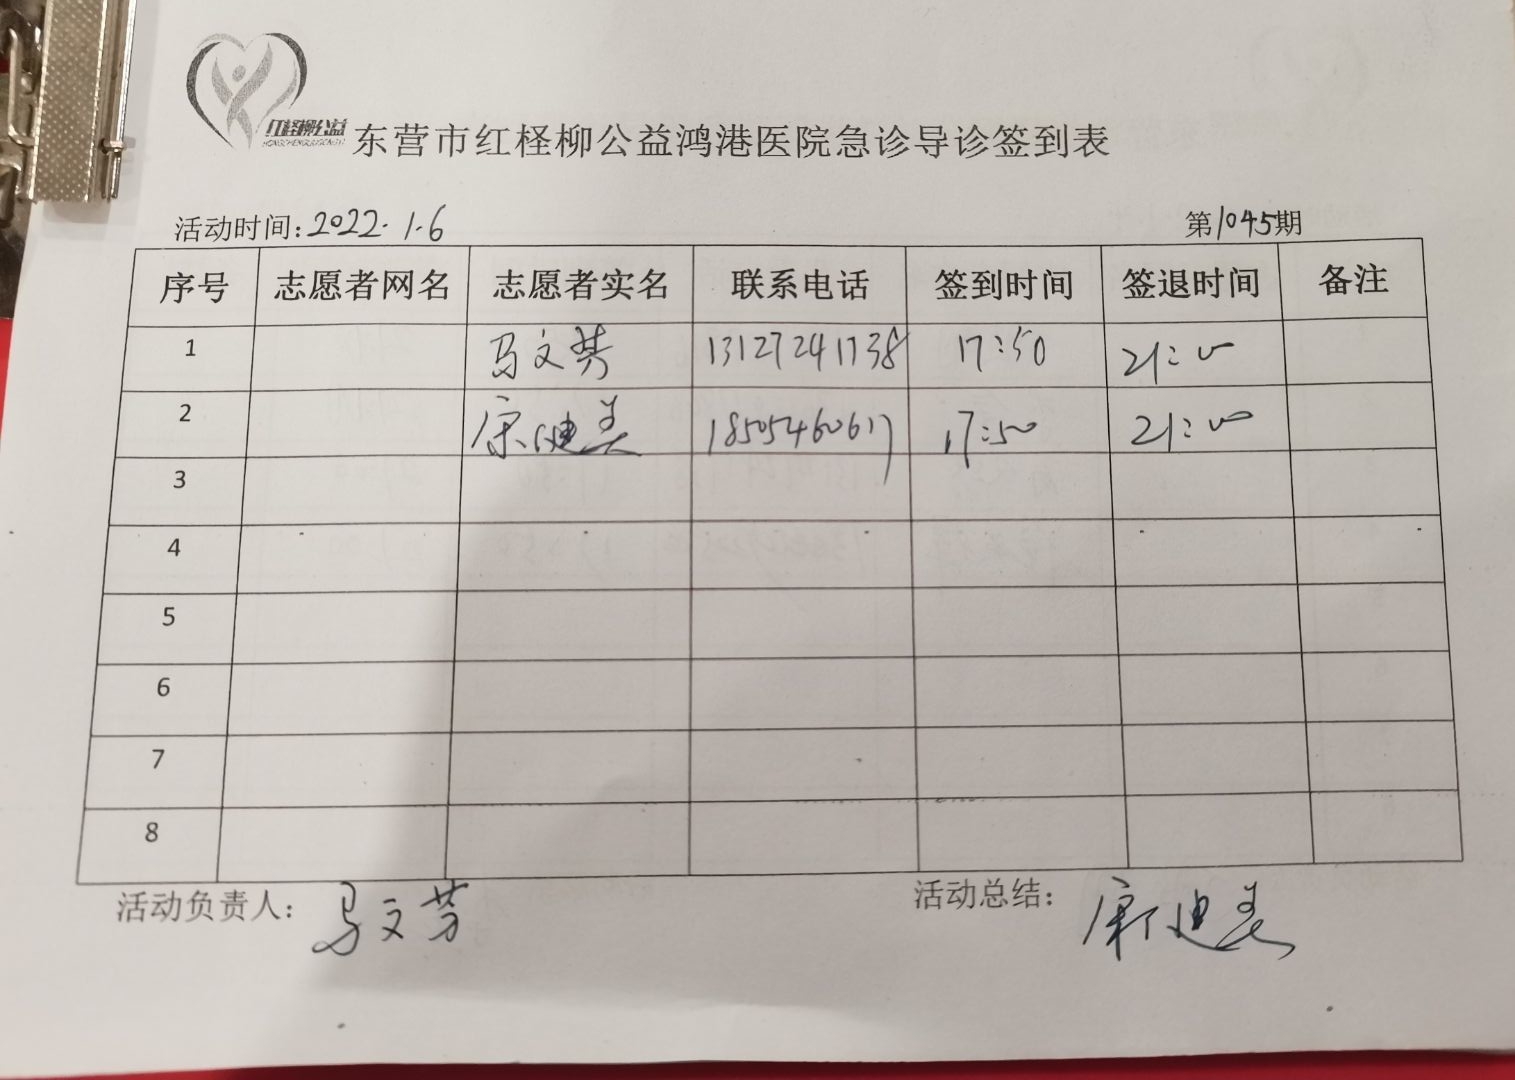 红柽柳公益
东营市红柽柳公益鸿港医院急诊导诊签到表
活动时间:2022.1.6 第1045期
序号 志愿者网名 志愿者实名 联系电话 签到时间 签退时间 备注
1 马文芳 13127241738 17:50 21:00
2 康迪美 18505460617 17:50 21:00
3
4
5
6
7
8
活动负责人: 马文芳 活动总结: 康迪美